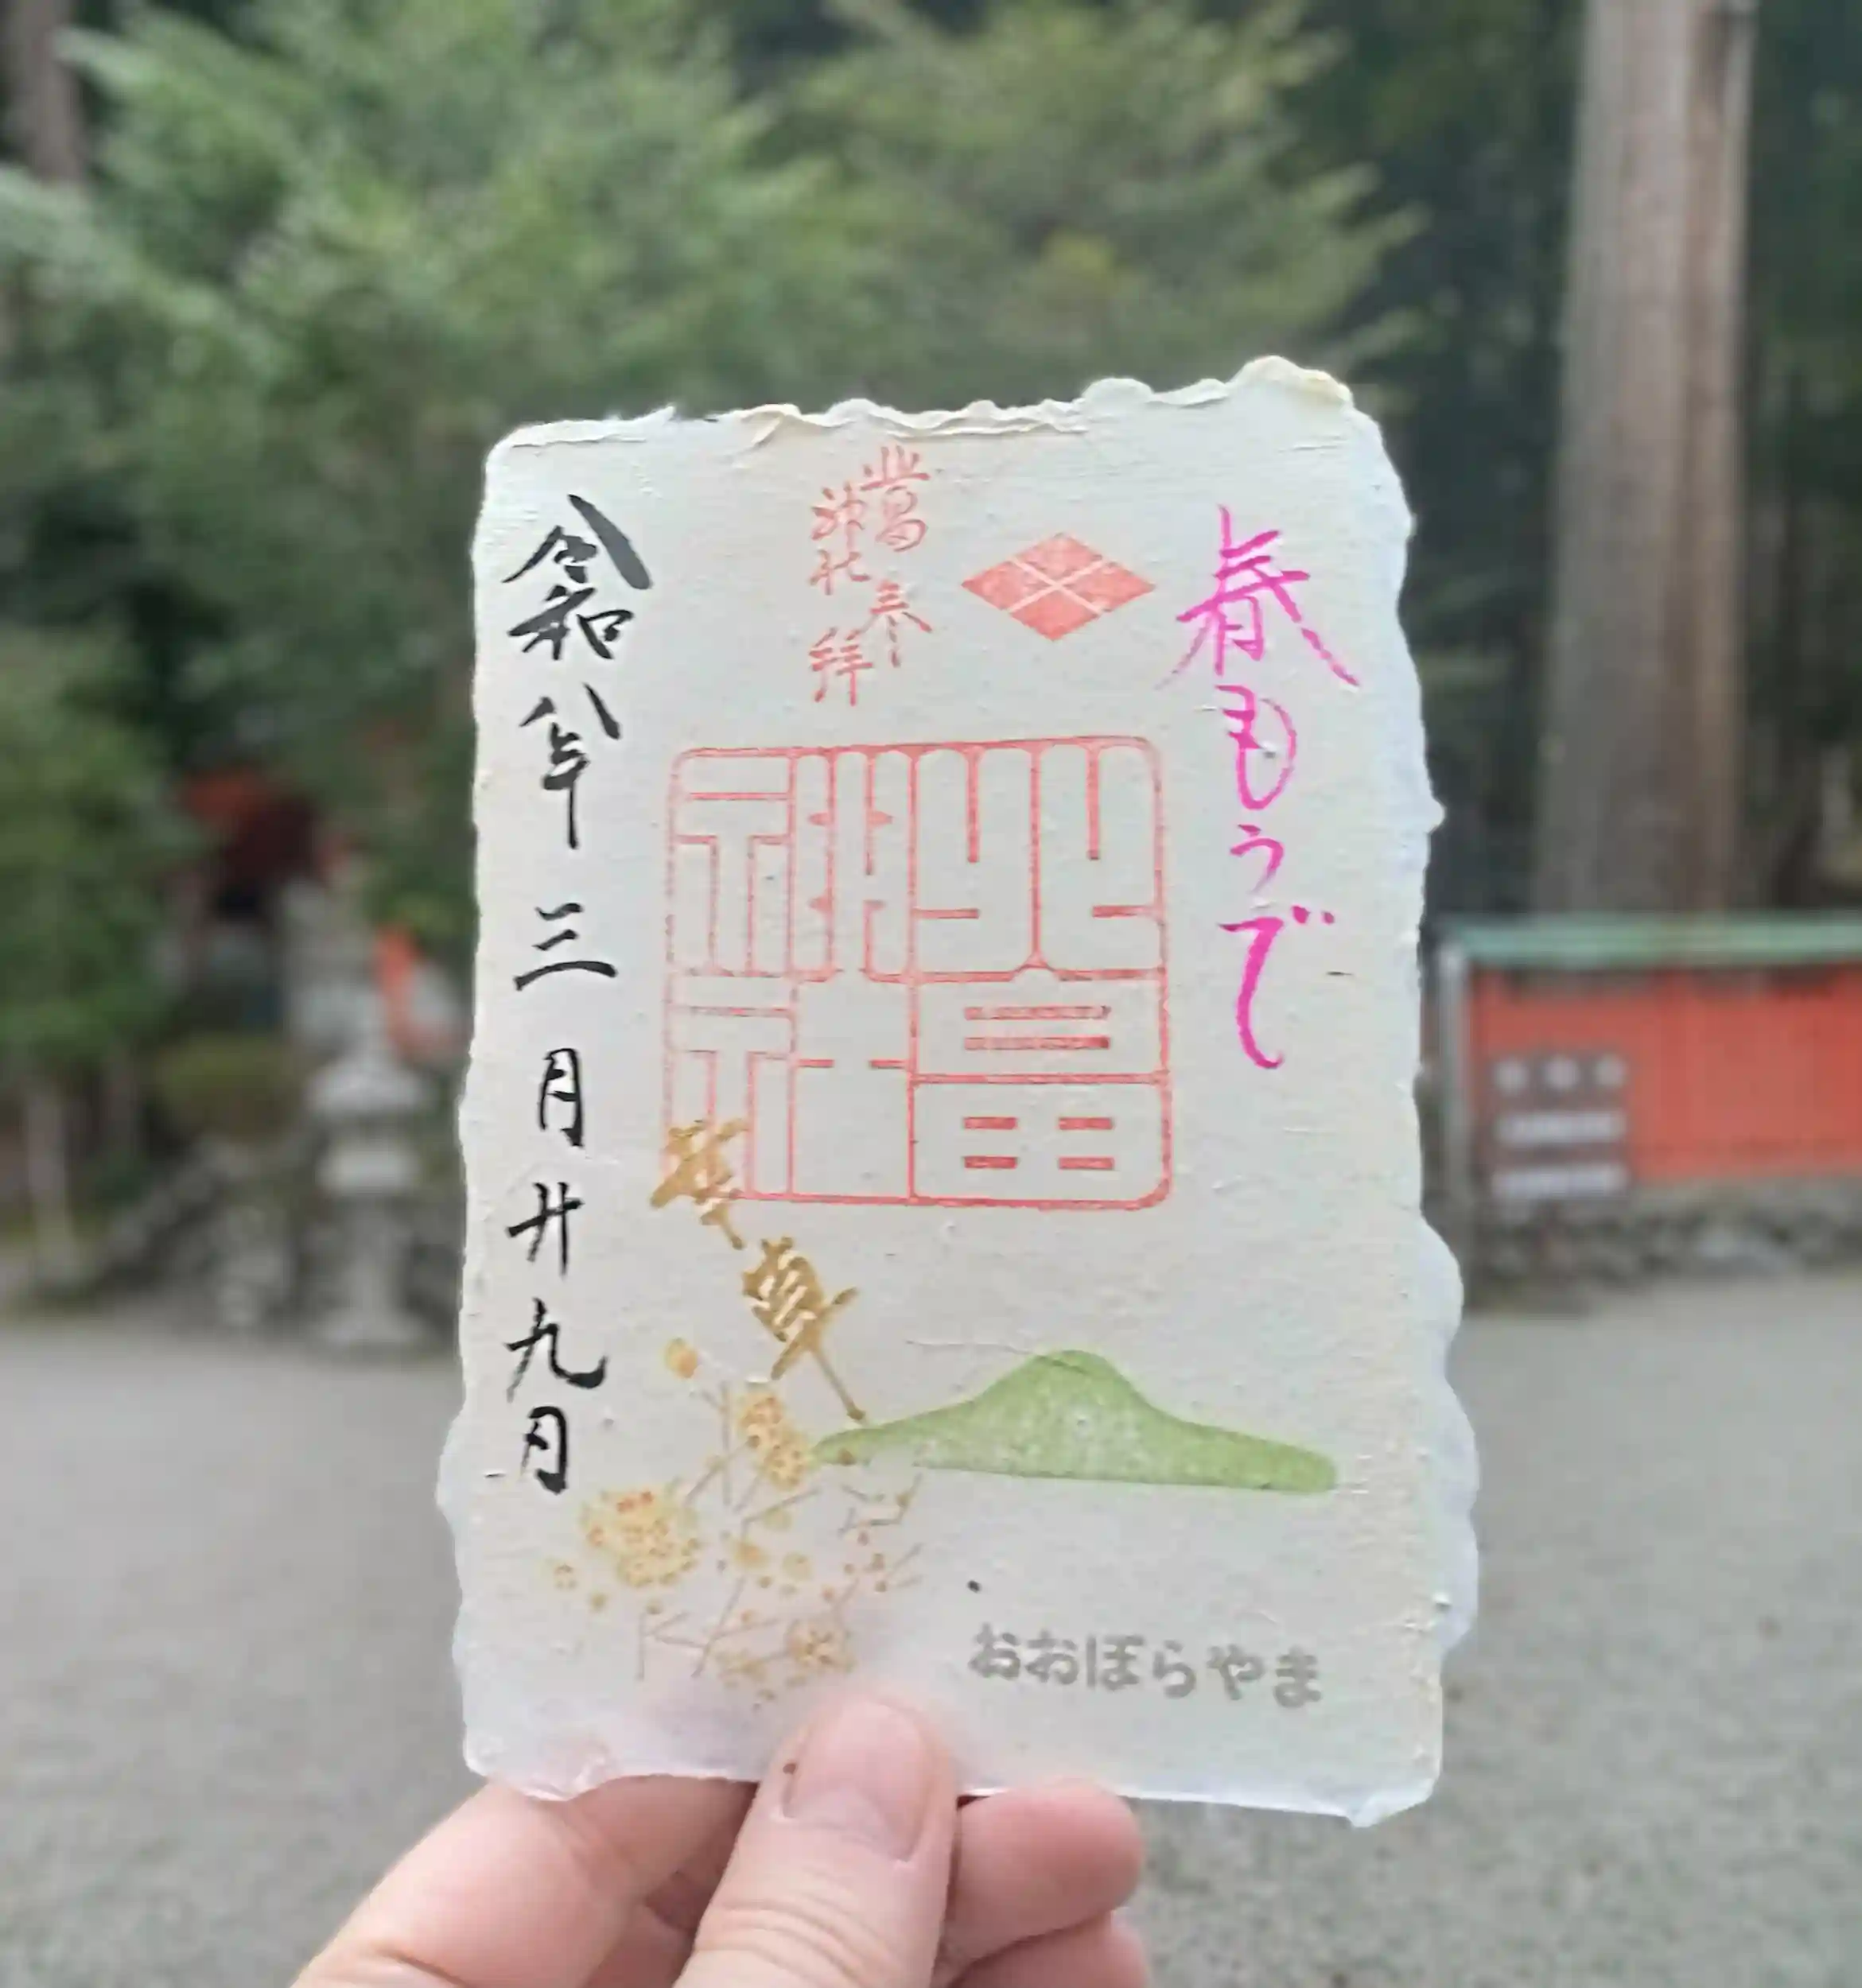 春もうで
北畠神社
参拝
北畠
神社
令和八年三月廿九日
おおぼらやま